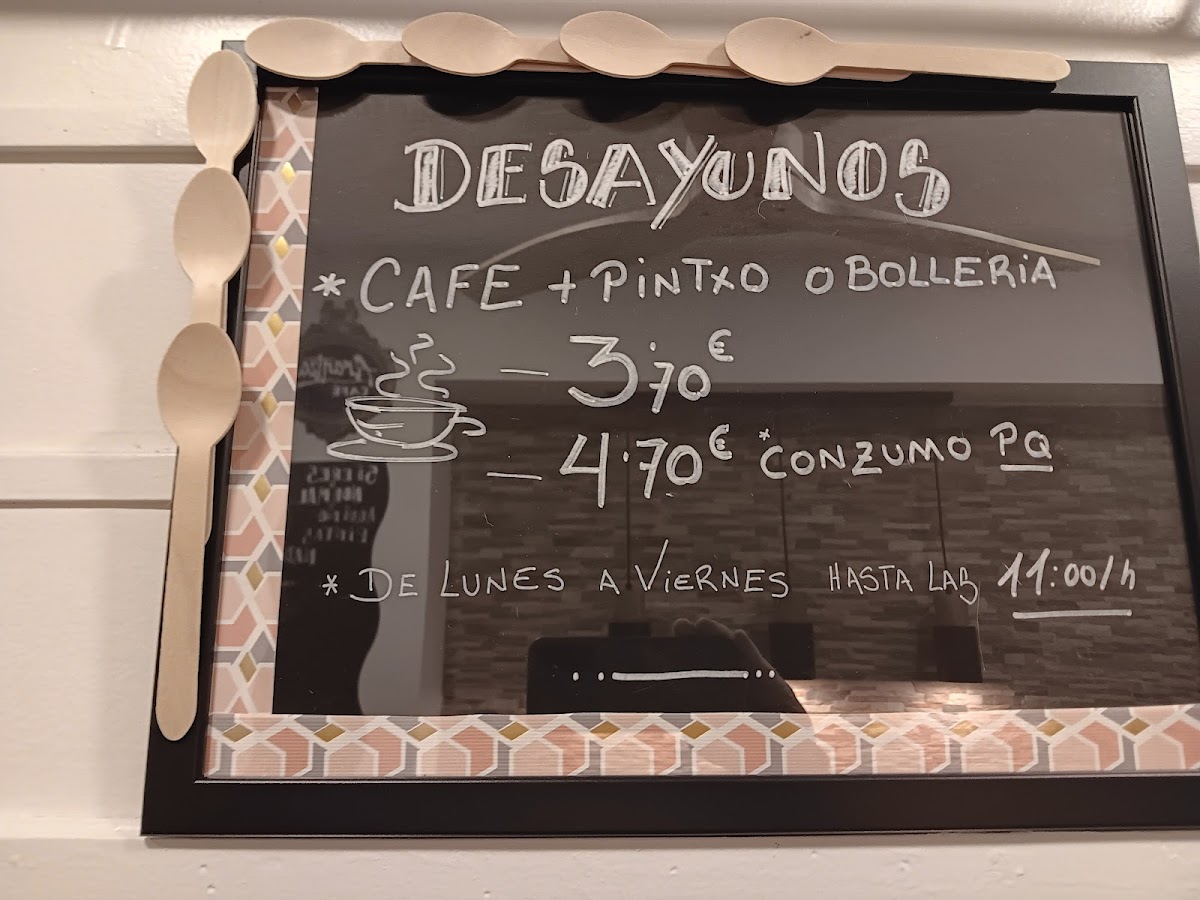 DESAYUNOS
* CAFE + PiNTXO O BOLLERiA
- 3,70€
- 4.70€ *CONZUMO PQ
* DE LUNES A ViERNES HASTA LAS 11:00/h